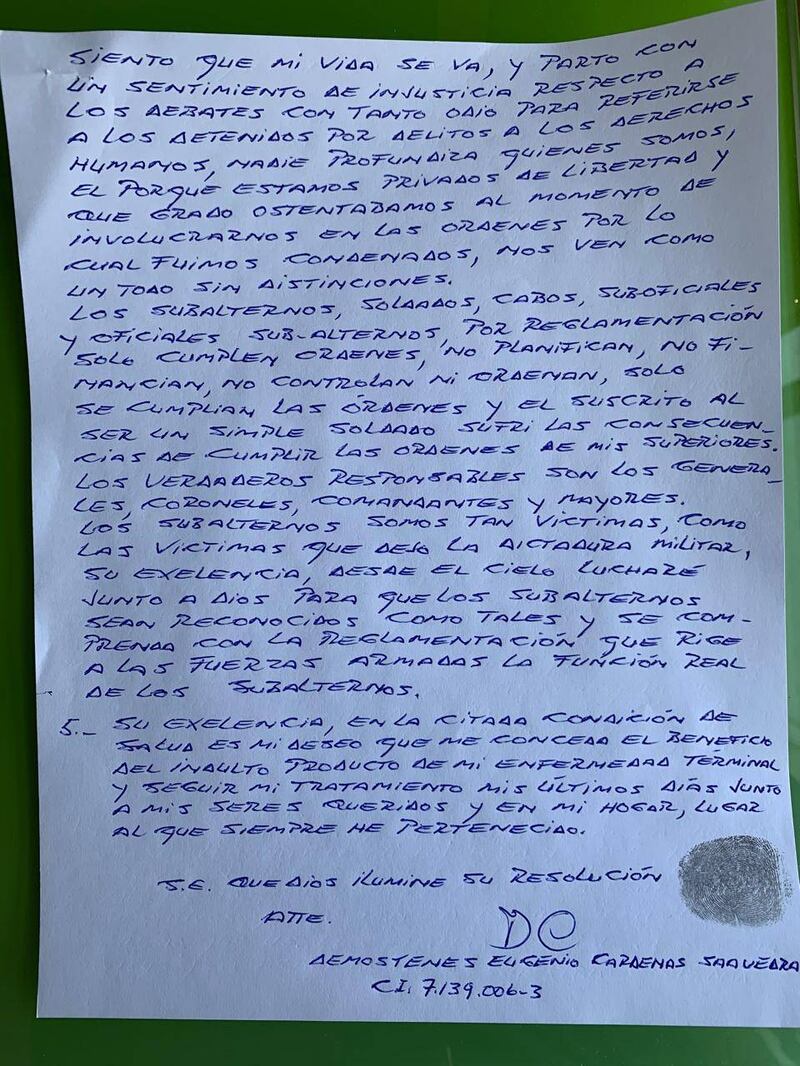 SIENTO QUE MI VIDA SE VA, Y PARTO CON
UN SENTIMIENTO DE INJUSTICIA RESPECTO A
LOS DEBATES CON TANTO ODIO PARA REFERIRSE
A LOS DETENIDOS POR DELITOS A LOS DERECHOS
HUMANOS, NADIE PROFUNDIZA QUIENES SOMOS,
EL PORQUE ESTAMOS PRIVADOS DE LIBERTAD Y
QUE GRADO OSTENTABAMOS AL MOMENTO DE
INVOLUCRARNOS EN LAS ORDENES POR LO
CUAL FUIMOS CONDENADOS, NOS VEN COMO
UN TODO SIN DISTINCIONES.
LOS SUBALTERNOS, SOLDADOS, CABOS, SUBOFICIALES
Y OFICIALES SUB-ALTERNOS, POR REGLAMENTACIÓN
SOLO CUMPLEN ORDENES, NO PLANIFICAN, NO FI-
NANCIAN, NO CONTROLAN NI ORDENAN, SOLO
SE CUMPLIAN LAS ÓRDENES Y EL SUSCRITO AL
SER UN SIMPLE SOLDADO SUFRI LAS CONSECUEN-
CIAS DE CUMPLIR LAS ORDENES DE MIS SUPERIORES.
LOS VERDADEROS RESPONSABLES SON LOS GENERA-
LES, CORONELES, COMANDANTES Y MAYORES.
LOS SUBALTERNOS SOMOS TAN VICTIMAS, COMO
LAS VICTIMAS QUE DEJO LA DICTADURA MILITAR,
SU EXELENCIA, DESDE EL CIELO LUCHARÉ
JUNTO A DIOS PARA QUE LOS SUBALTERNOS
SEAN RECONOCIDOS COMO TALES Y SE COM-
PRENDA CON LA REGLAMENTACIÓN QUE RIGE
A LAS FUERZAS ARMADAS LA FUNCIÓN REAL
DE LOS SUBALTERNOS.
5.- SU EXELENCIA, EN LA CITADA CONDICIÓN DE
SALUD ES MI DESEO QUE ME CONCEDA EL BENEFICIO
DEL INDULTO PRODUCTO DE MI ENFERMEDAD TÉRMINAL
Y SEGUIR MI TRATAMIENTO MIS ÚLTIMOS DÍAS JUNTO
A MIS SERES QUERIDOS Y EN MI HOGAR, LUGAR
AL QUE SIEMPRE HE PERTENECIDO.
S.E. QUE DIOS ILUMINE SU RESOLUCIÓN
ATTE.
DC
DEMOSTENES EUGENIO CARDENAS SAAVEDRA
C.I. 7.139.006-3